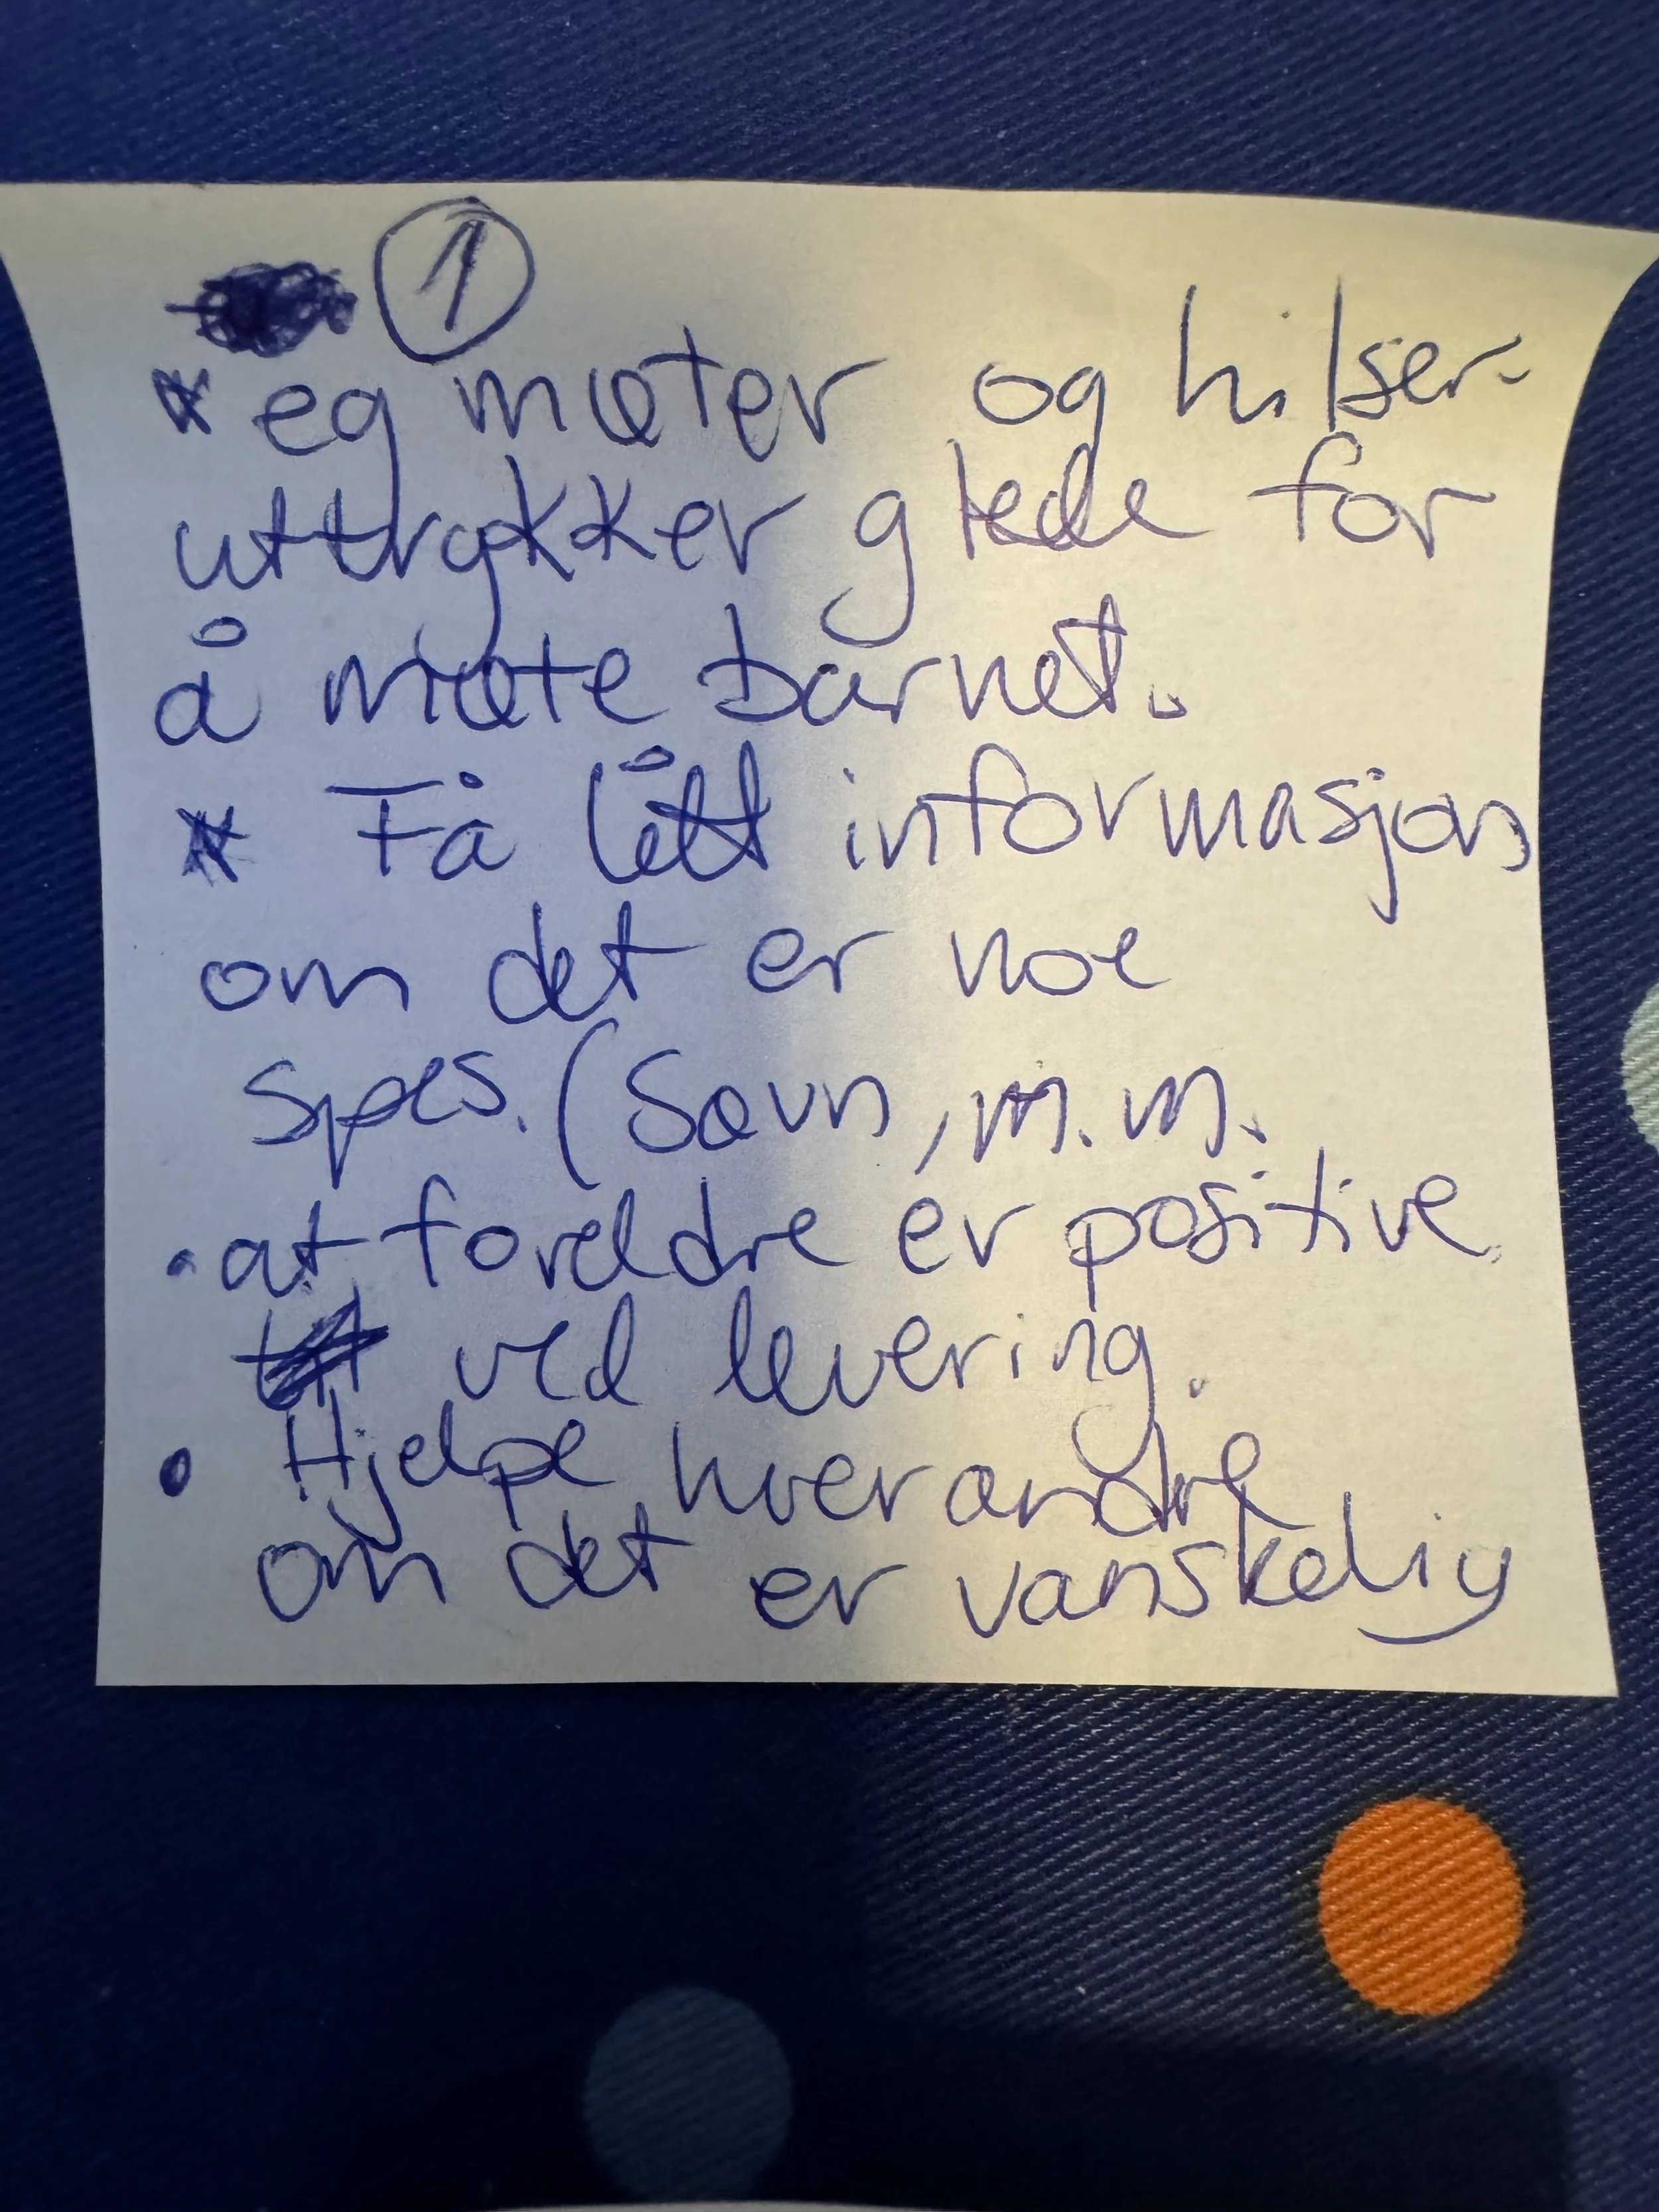 ①
* eg møter og hilser-
uttrykker glede for
å møte barnet.
* Få litt informasjon
om det er noe
spes. (Søvn, m.m.
• at foreldre er positive
ved levering.
• Hjelpe hverandre
om det er vanskelig